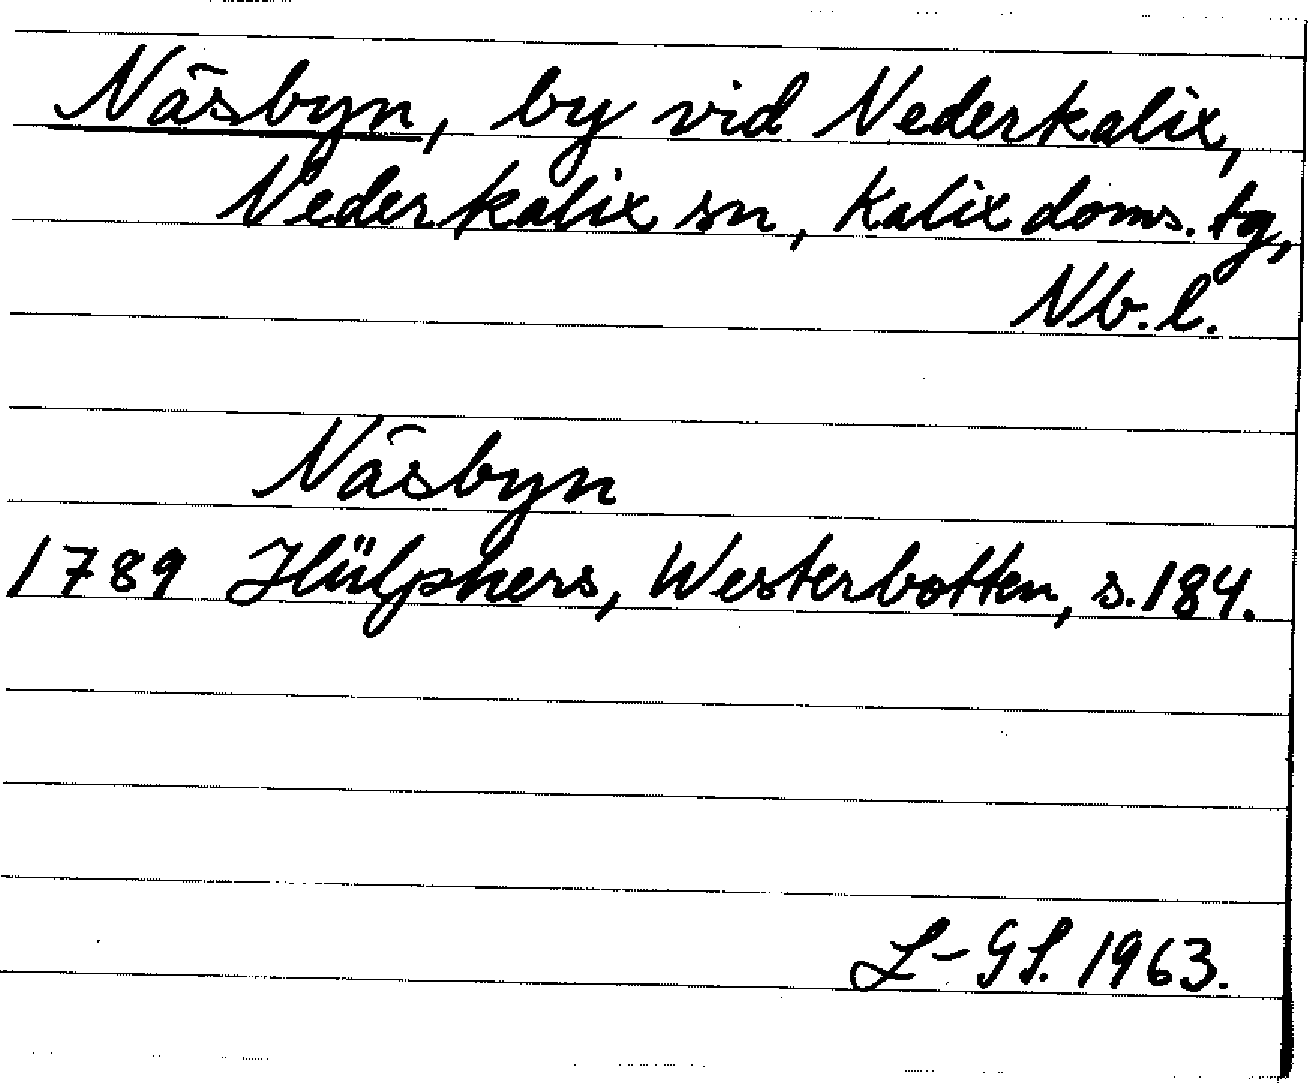 Näsbyn, by vid Nederkalix,
Nederkalix sn, Kalix doms. tg,
Nb. l.
Näsbyn
1789 Hülphers, Westerbotten, s. 184.
L-GL. 1963.